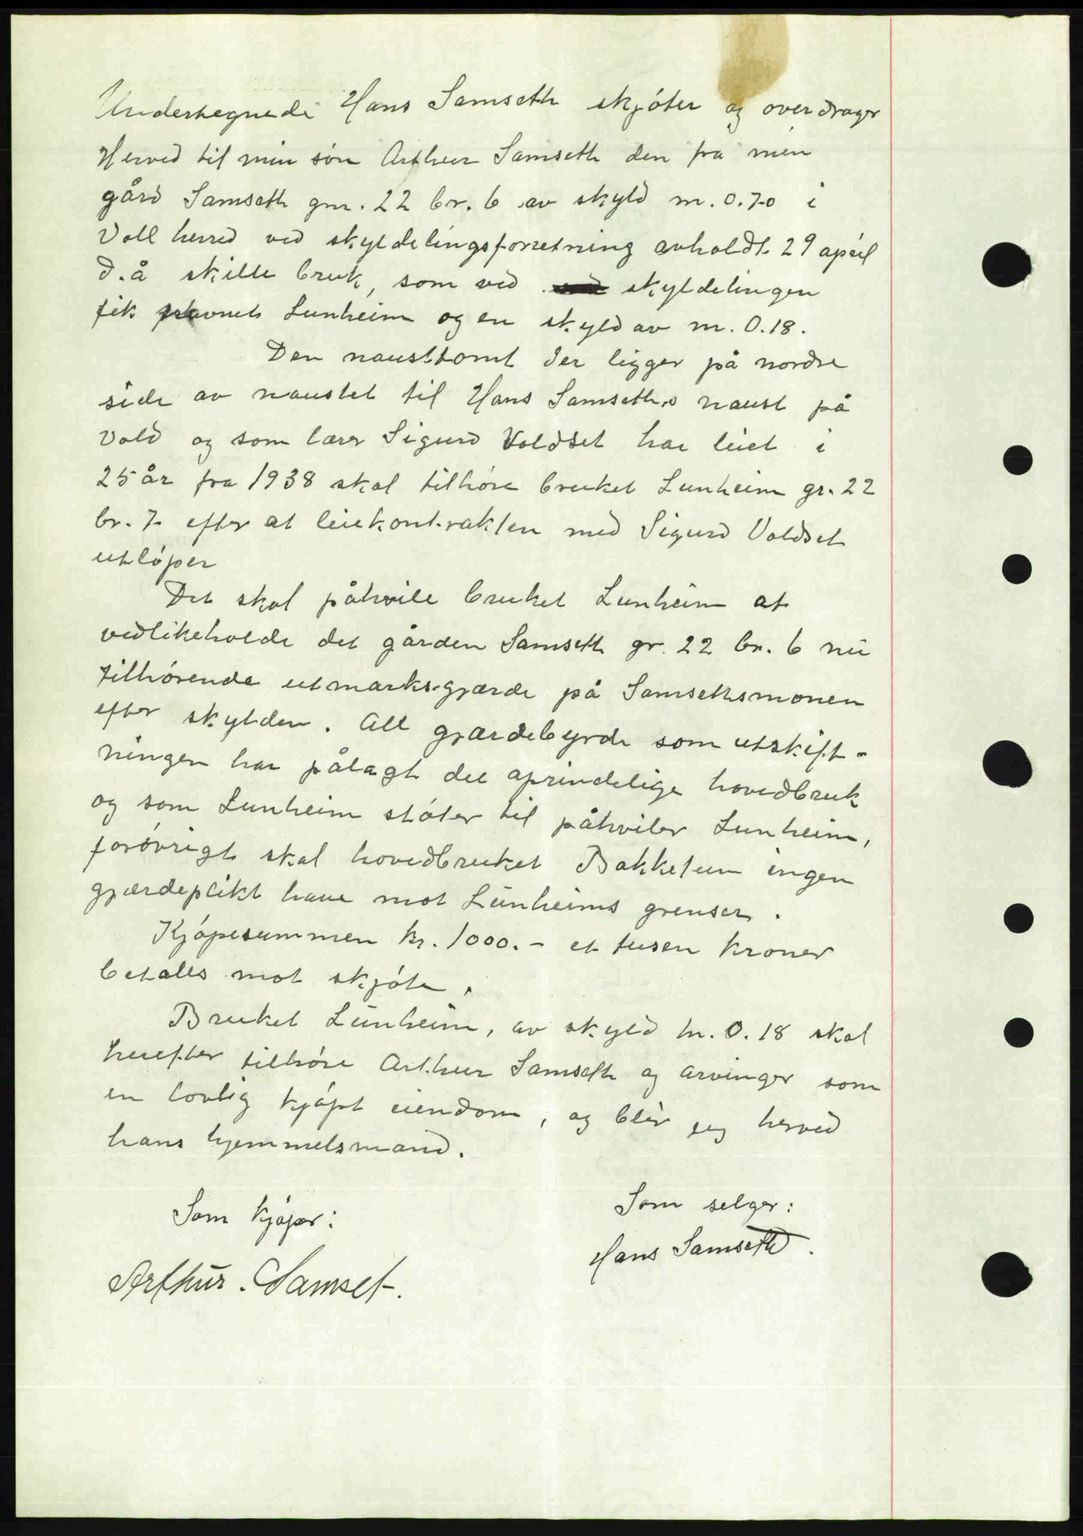 Undertegnede Hans Samseth skjøter og overdrager
Herved til min søn Arthur Samseth den fra min
gård Samseth gnr. 22 br. 6 av skyld m. 0.70 i
Voll herred ved skyldelingsforretning avholdt 29 april
d.å skille bruk, som ved skyldelingen
fik navnet Lunheim og en skyld av m. 0.18.
Den nausttomt der ligger på nordre
side av naustet til Hans Samseths naust på
Vold og som lærer Sigurd Voldset har leiet i
25 år fra 1938 skal tilhøre bruket Lunheim gr. 22
br. 7 efter at leiekontrakten med Sigurd Voldset
utløper
Det skal påhvile bruket Lunheim at
vedlikeholde det gården Samseth gr. 22 br. 6 nu
tilhørende utmarks-gjærde på Samsethsmonen
efter skylden. All gjærdebyrde som utskift-
ningen har pålagt det oprindelige hovedbruk
og som Lunheim støter til påhviler Lunheim,
forøvrigt skal hovedbruket Bakketun ingen
gjærdeplikt have mot Lunheims grenser.
Kjøpesummen kr. 1000.- et tusen kroner
betales mot skjøte.
Bruket Lunheim, av skyld m. 0.18 skal
herefter tilhøre Arthur Samseth og arvinger som
en lovlig kjøpt eiendom, og blir jeg herved
hans hjemmelsmand.
Som kjøper:
Arthur Samset.
Som selger:
Hans Samseth.